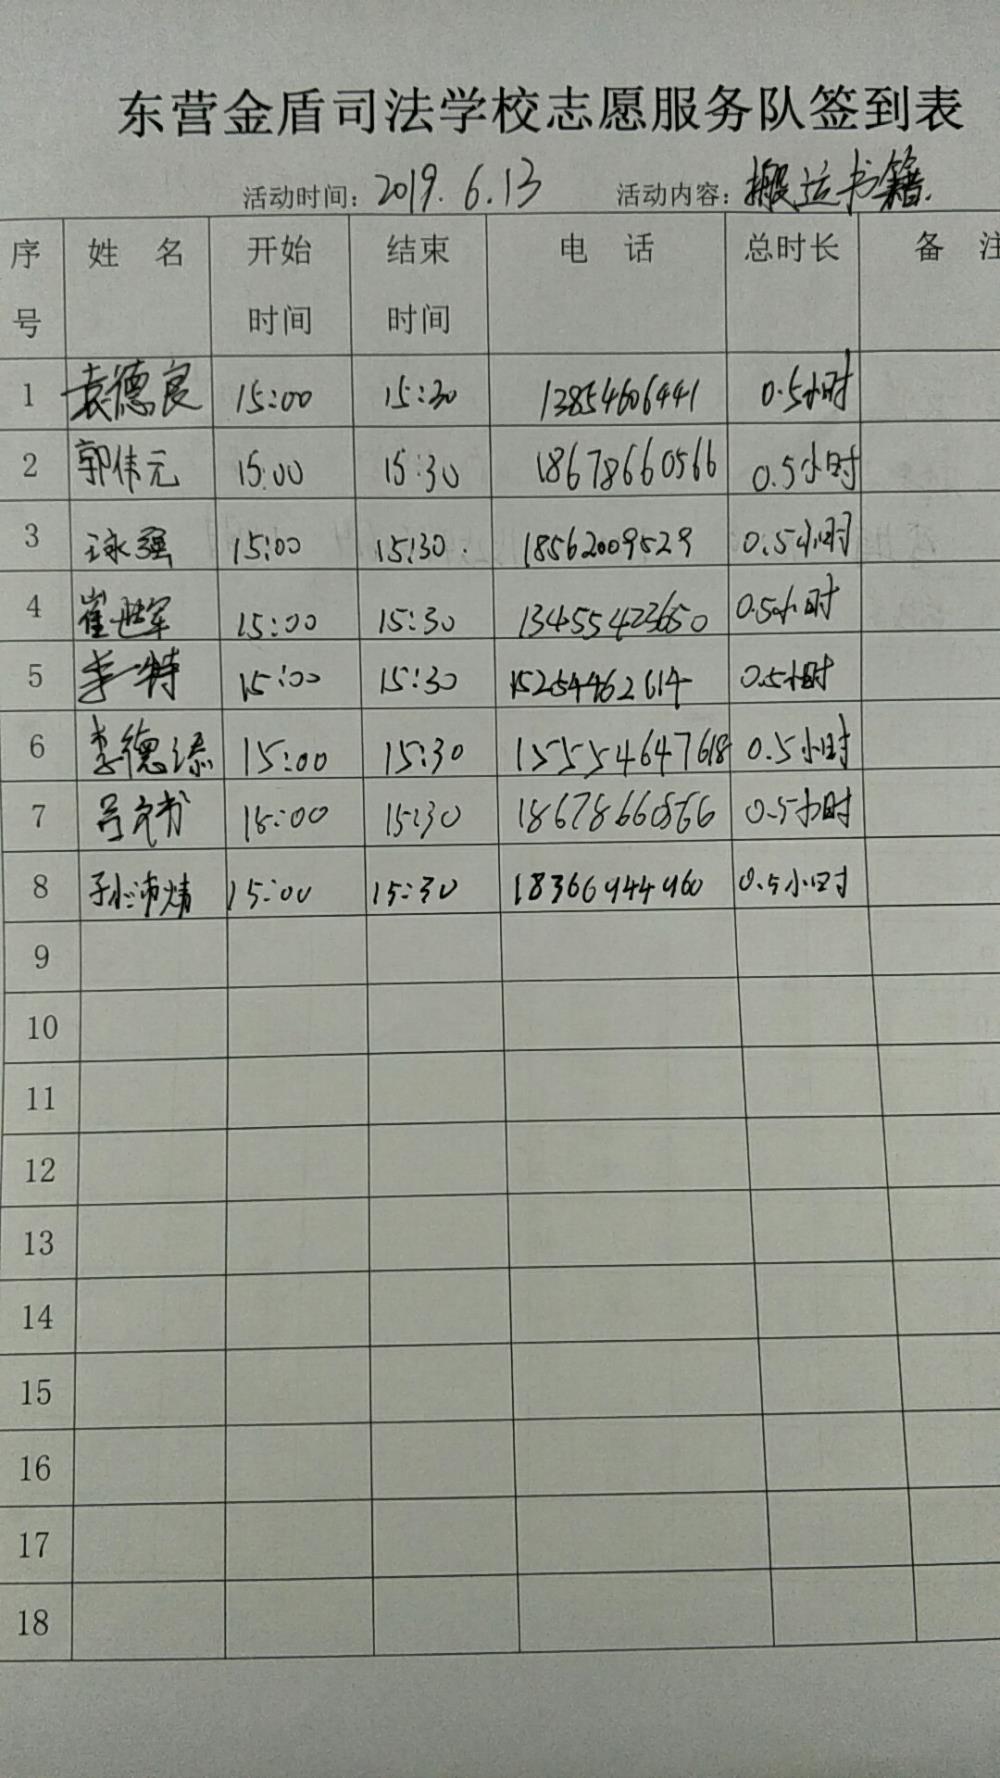 东营金盾司法学校志愿服务队签到表
活动时间: 2019.6.13 活动内容: 搬运书籍.
序号 姓 名 开始时间 结束时间 电 话 总时长 备 注
1 袁德良 15:00 15:30 13854606441 0.5小时
2 郭伟元 15:00 15:30 18678660566 0.5小时
3 强 15:00 15:30. 18562009529 0.5小时
4 崔世军 15:00 15:30 13455423650 0.5小时
5 李特 15:00 15:30 15254462614 0.5小时
6 李德添 15:00 15:30 155554647618 0.5小时
7 吕文 15:00 15:30 18678660566 0.5小时
8 孙沛婧 15:00 15:30 18366944960 0.5小时
9
10
11
12
13
14
15
16
17
18